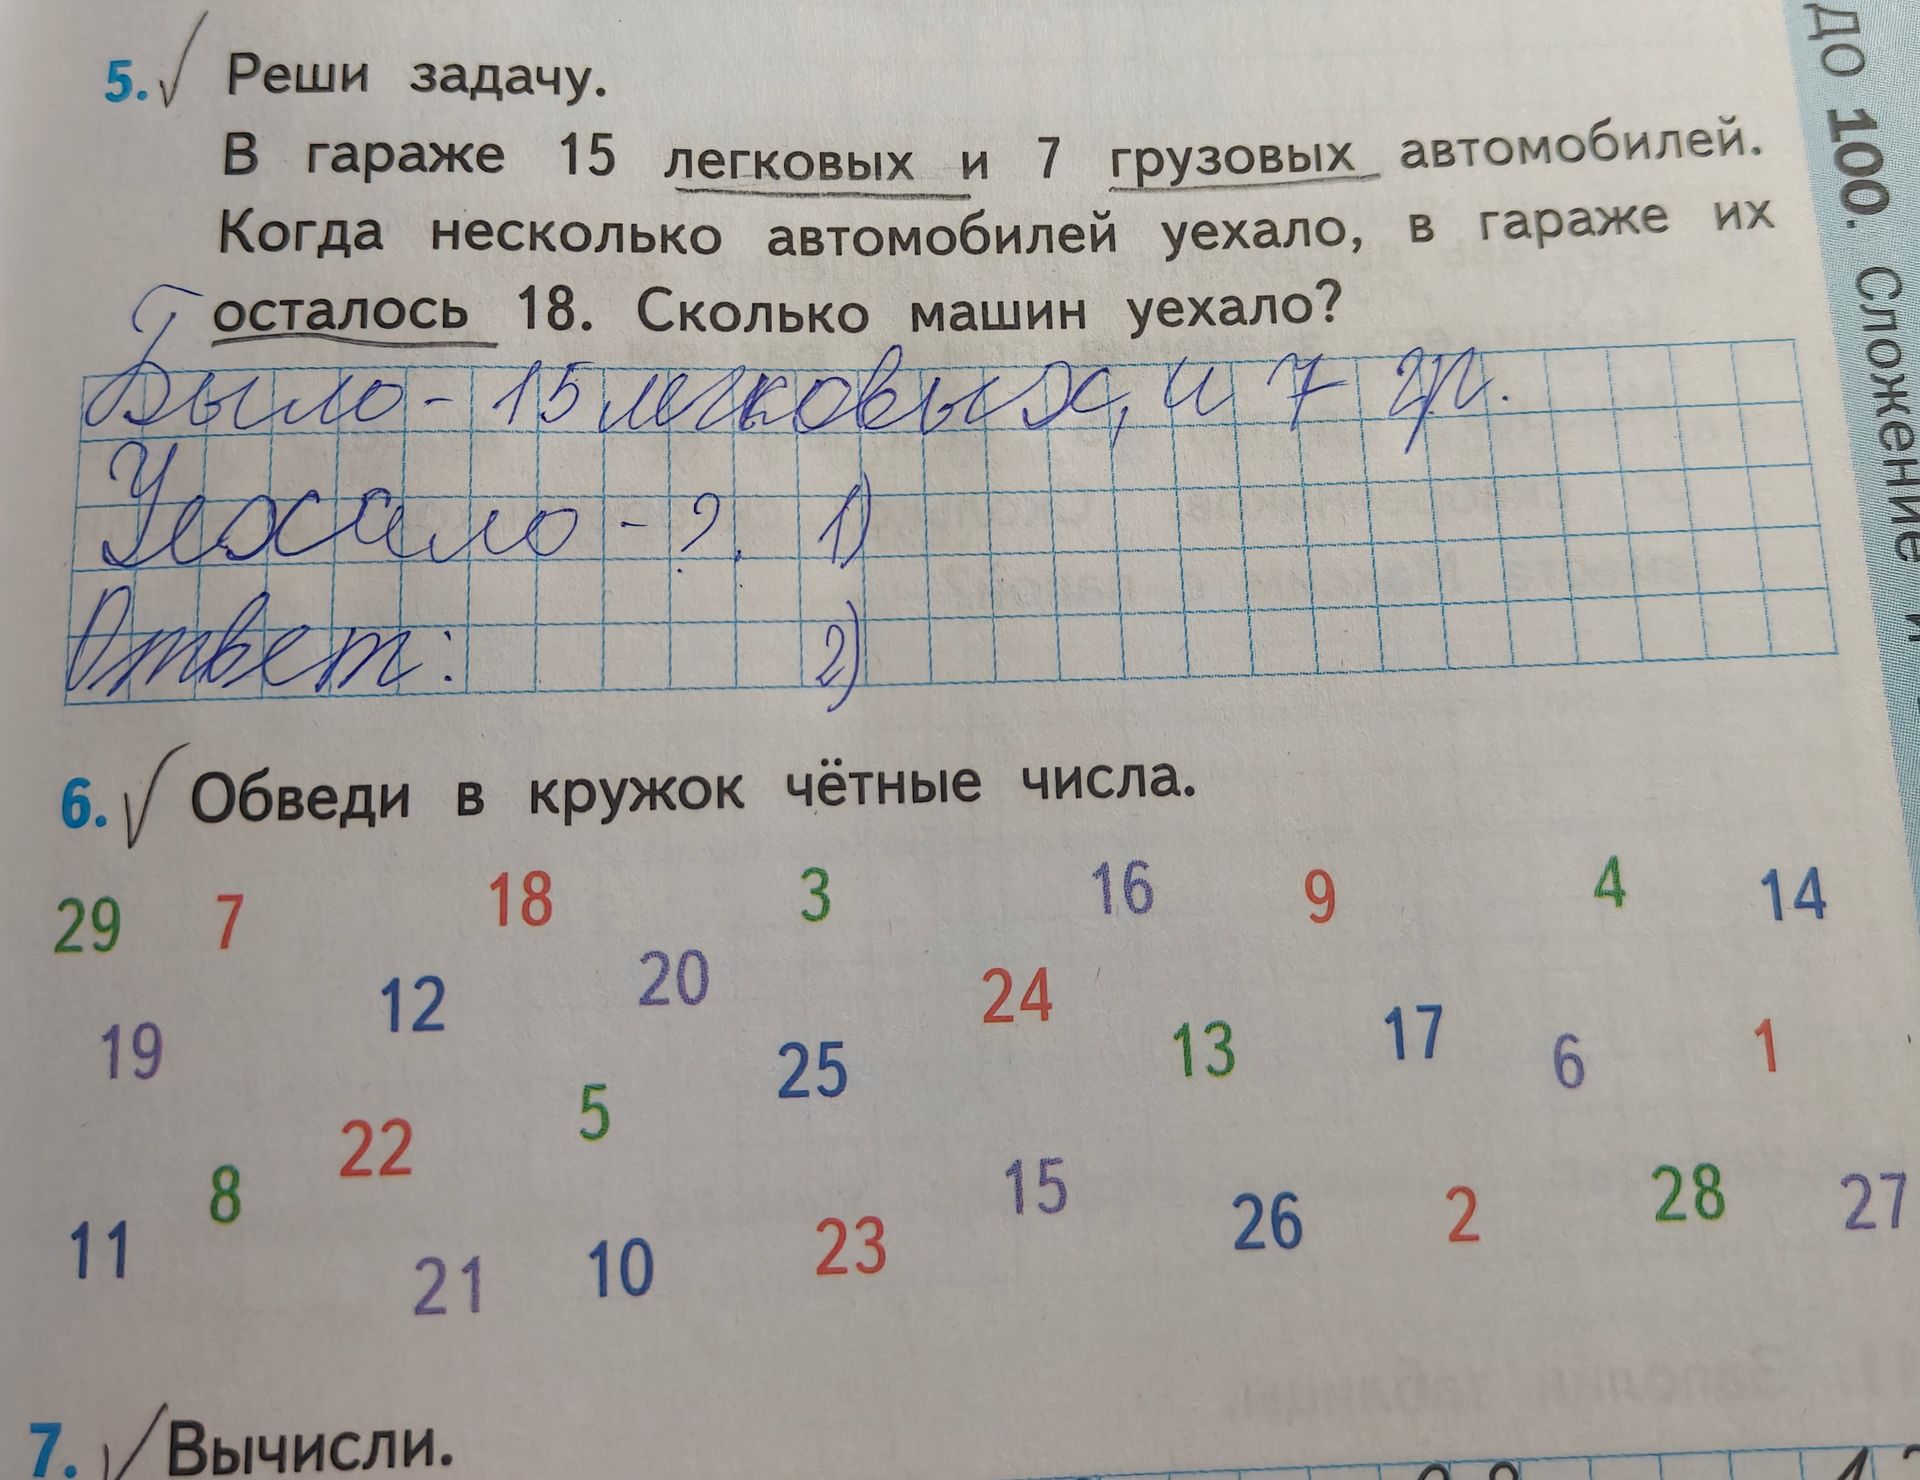 5. Реши задачу.
В гараже 15 легковых и 7 грузовых автомобилей.
Когда несколько автомобилей уехало, в гараже их
осталось 18. Сколько машин уехало?
Было - 15 легковых, и 7 гр.
Уехало - ?. 1)
Ответ: 2)
6. Обведи в кружок чётные числа.
29 7 18 3 16 9 4 14
12 20 24
19 25 13 17 6 1
22 5
8 15 26 2 28 27
11 21 10 23
7. Вычисли.
до 100. Сложение и